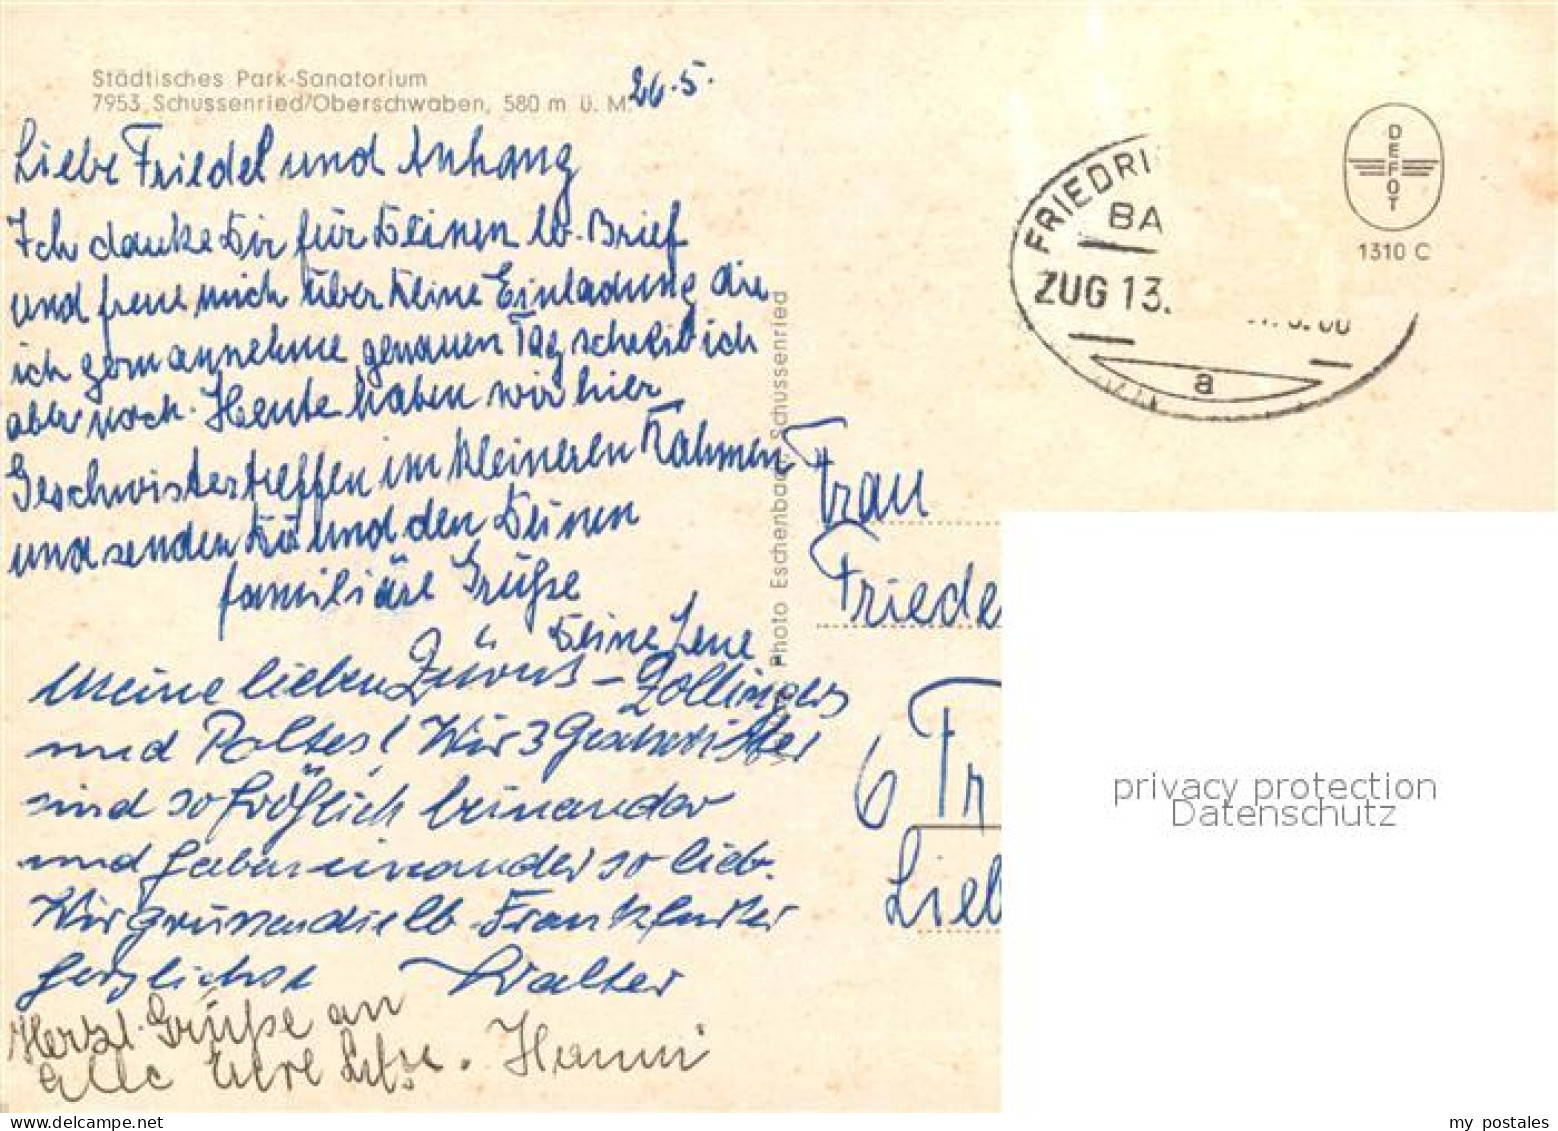 Städtisches Park-Sanatorium
7953 Schussenried/Oberschwaben, 580 m ü. M.
26.5.
Liebe Friedel und Anhang
Ich danke Dir für Deinen lb. Brief
und freue mich über Deine Einladung die
ich gern annehme, genauen Tag schreib ich
aber noch. Heute haben wir hier
Geschwistertreffen im kleineren Rahmen
und senden Dir und den Deinen
familiäre Grüße
Deine Lene.
Meine lieben - Zollingers
und Poltes! Wir 3 Geschwister
sind so fröhlich beinander
und haben einander so lieb.
Wir grüssen die lb. Frankfurter
herzlichst Walter
Herzl. Grüße an
alle Eure Hanni
Photo Eschenbach, Schussenried
FRIEDRI
BA
ZUG 13.
a
DEFOT
1310 C
Frau
Friede
6 Fr
Lieb
privacy protection
Datenschutz
my postales